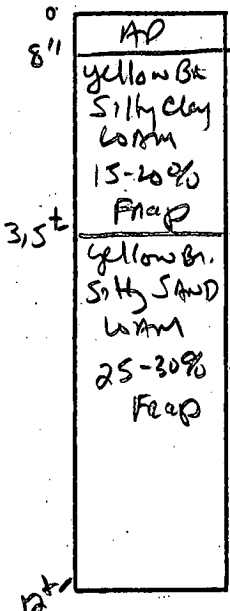 0'
AP
8"
yellow Br
Silty Clay
LOAM
15-20%
Frag
3,5'
yellow Br.
Silty SAND
LOAM
25-30%
Frag
12'